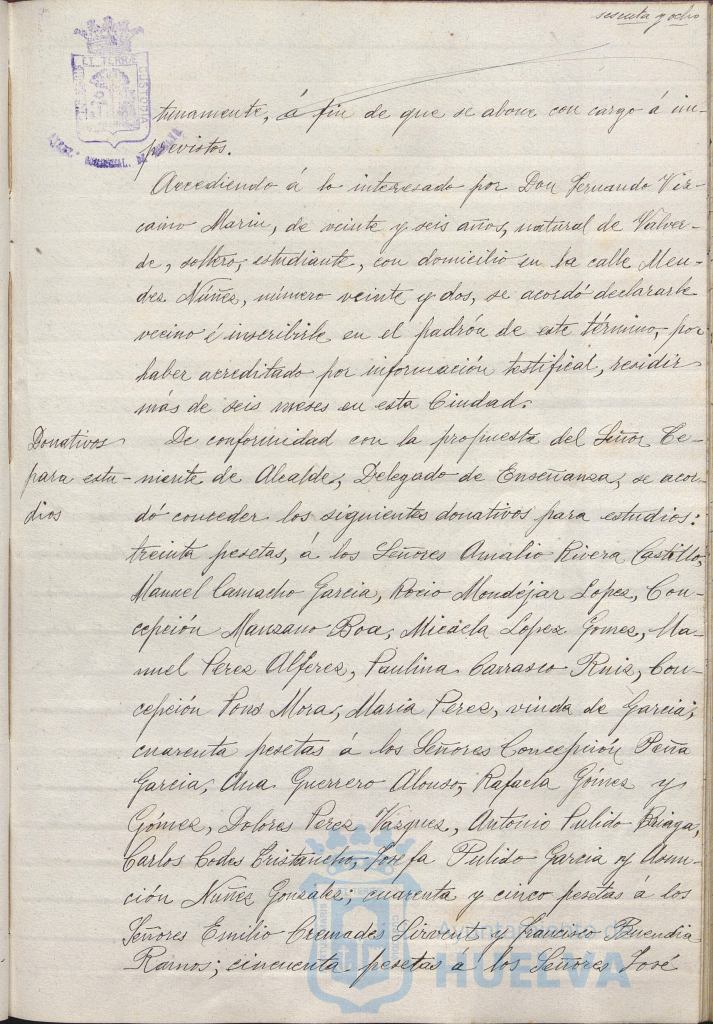 sesenta y ocho
tunamente, á fin de que se abone con cargo á im-
previstos.
Accediendo á lo interesado por Don Fernando Viz-
caino Marin, de veinte y seis años, natural de Valver-
de, soltero, estudiante, con domicilio en la calle Men-
dez Núñez, número veinte y dos, se acordó declararle
vecino é inscribirle en el padrón de este término, por
haber acreditado por información testifical, residir
más de seis meses en esta Ciudad.
Donativos
para estu-
dios
De conformidad con la propuesta del Señor Te-
niente de Alcalde, Delegado de Enseñanza, se acor-
dó conceder los siguientes donativos para estudios:
treinta pesetas, á los Señores Amalio Rivera Castillo,
Manuel Camacho Garcia, Rocio Mondéjar Lopez, Con-
cepción Manzano Boa, Micaela Lopez Gomez, Ma-
nuel Perez Alferez, Paulina Carrasco Ruiz, Con-
cepción Pons Mora, Maria Perez, viuda de Garcia;
cuarenta pesetas á los Señores Concepción Peña
Garcia, Ana Guerrero Alonso, Rafaela Gómez y
Gómez, Dolores Perez Vazquez, Antonio Pulido
Carlos Codes Cristancho, Josefa Pulido Garcia y Asun-
ción Nuñez Gonzalez; cuarenta y cinco pesetas á los
Señores Emilio Cremades Sirvent y Francisco Buendia
Ramos; cincuenta pesetas a los Señores José
Ayuntamiento de
HUELVA